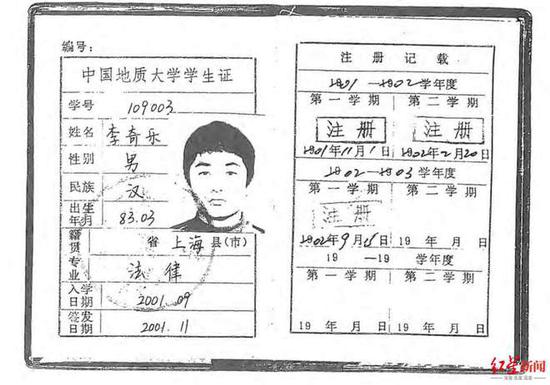 编号：
中国地质大学学生证
学号 109003
姓名 李奇乐
性别 男
民族 汉
出生年月 83.03
籍贯 省 上海 县(市)
专业 法律
入学日期 2001.09
签发日期 2001.11
注册记载
2001—2002学年度
第一学期 第二学期
注册 注册
2001年11月1日 2002年2月20日
2002—2003学年度
第一学期 第二学期
注册
2002年9月 日 19 年 月 日
19 —19 学年度
第一学期 第二学期
19 年 月 日 19 年 月 日
红星新闻